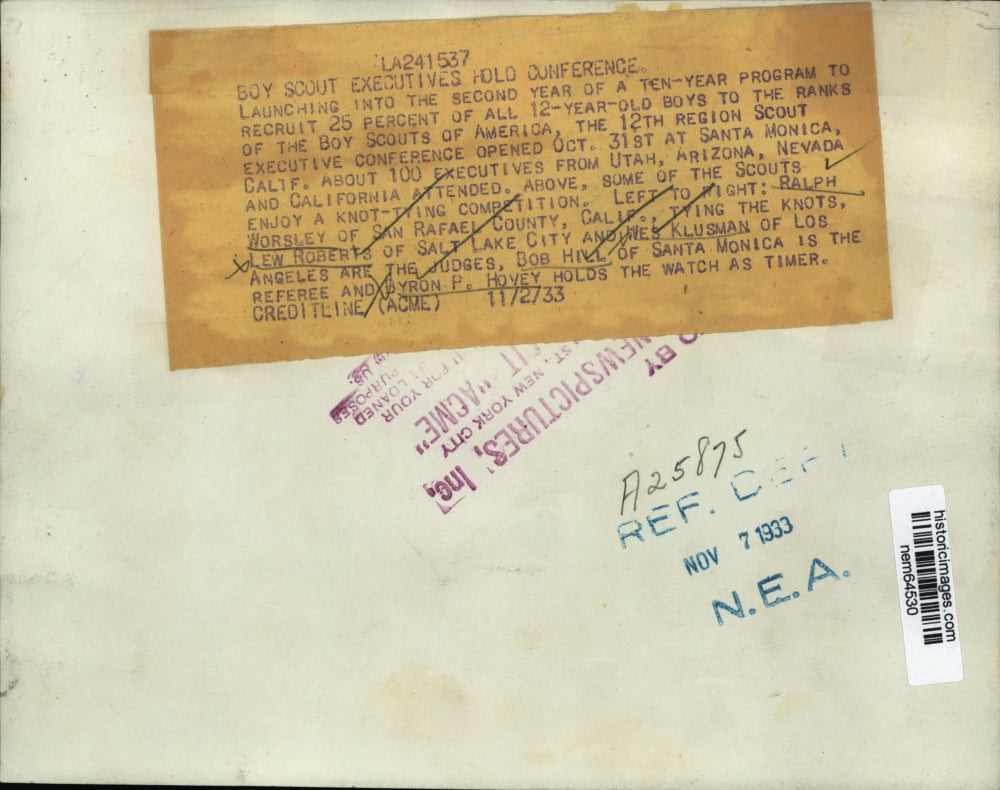 LA241537
BOY SCOUT EXECUTIVES HOLD CONFERENCE.
LAUNCHING INTO THE SECOND YEAR OF A TEN-YEAR PROGRAM TO
RECRUIT 25 PERCENT OF ALL 12-YEAR-OLD BOYS TO THE RANKS
OF THE BOY SCOUTS OF AMERICA, THE 12TH REGION SCOUT
EXECUTIVE CONFERENCE OPENED OCT. 31ST AT SANTA MONICA,
CALIF. ABOUT 100 EXECUTIVES FROM UTAH, ARIZONA, NEVADA
AND CALIFORNIA ATTENDED. ABOVE, SOME OF THE SCOUTS
ENJOY A KNOT-TYING COMPETITION. LEFT TO RIGHT: RALPH
WORSLEY OF SAN RAFAEL COUNTY, CALIF., TYING THE KNOTS,
LEW ROBERTS OF SALT LAKE CITY AND WES KLUSMAN OF LOS
ANGELES ARE THE JUDGES, BOB HILL OF SANTA MONICA IS THE
REFEREE AND BYRON P. HOVEY HOLDS THE WATCH AS TIMER.
CREDITLINE (ACME) 11/2/33
BY
NEWSPICTURES, Inc,
ST., NEW YORK CITY
"ACME"
FOR YOUR
LOANED
PURPOSES
A25875
REF. DEPT
NOV 7 1933
N.E.A.
historicimages.com
nem64530